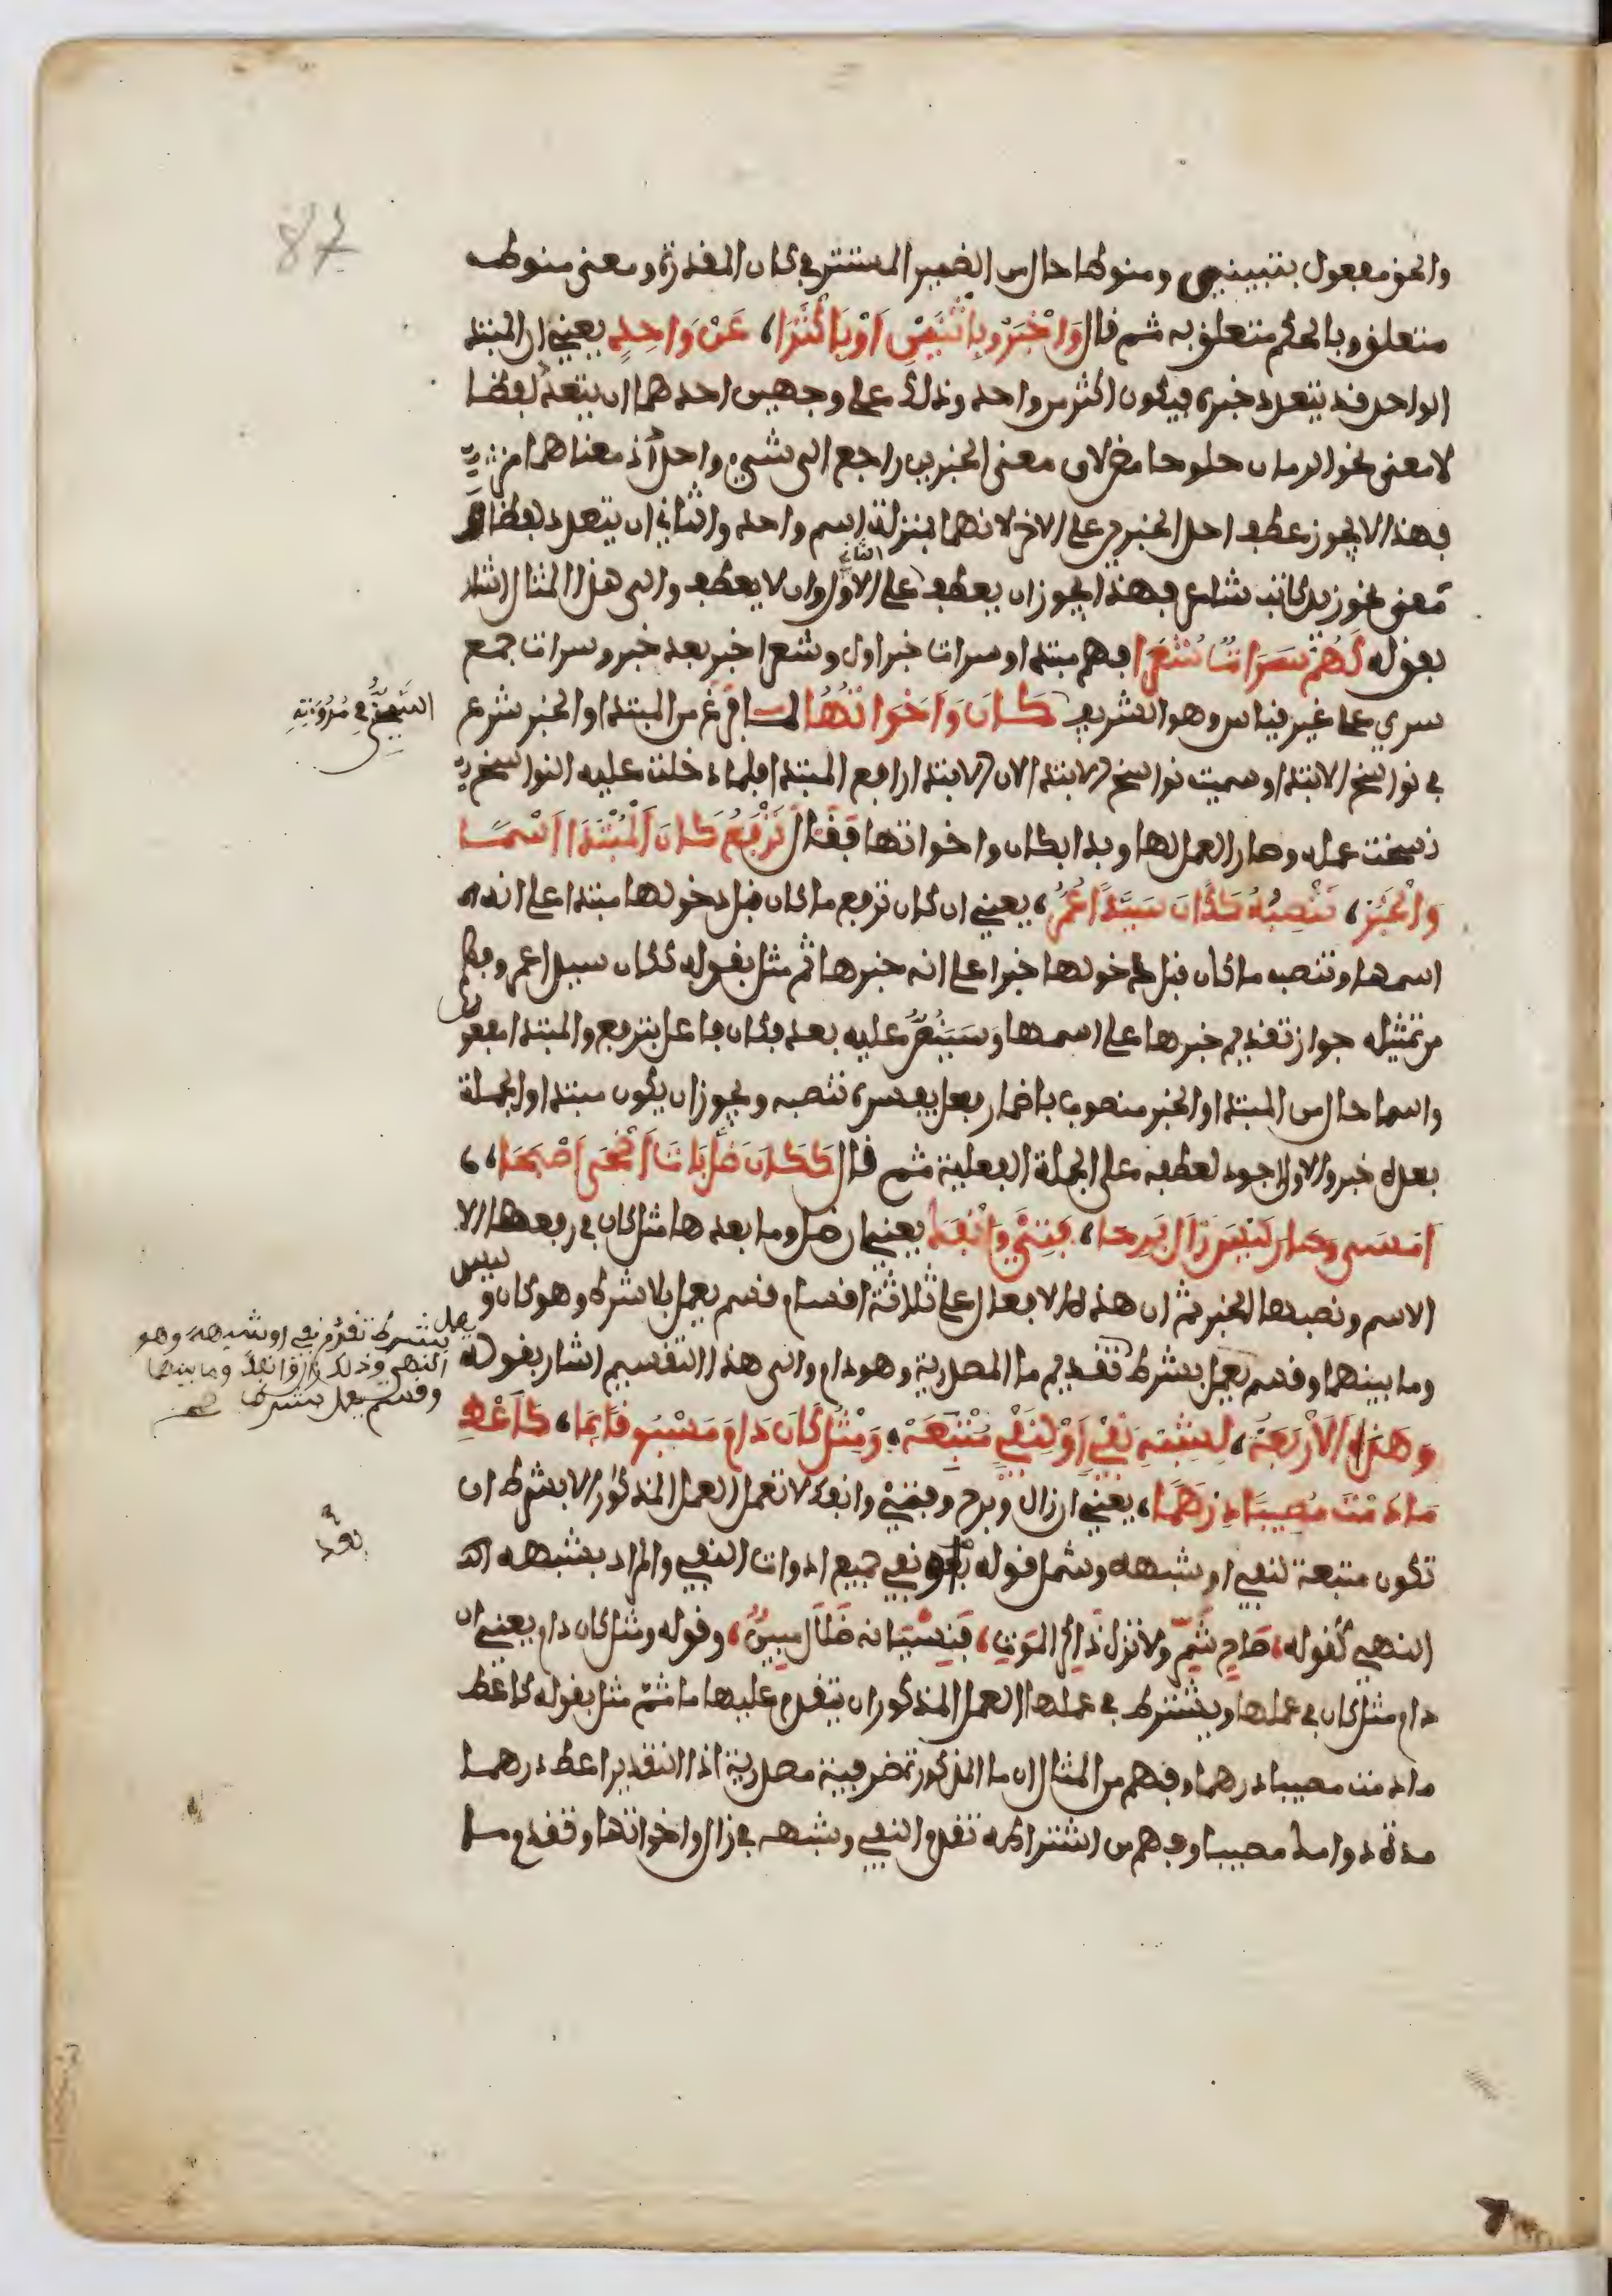 87
والحق مفعول بتبييني ومنوطا حال من الضمير المستتر في كان المقدرة ومعنى منوط
متعلق وبالحكم متعلق به ثم قال وَاخْبَرُوا بِاثْنَيْنِ اَوْ بِاَكْثَرَا، عَنْ وَاحِدٍ يعني ان المبتدا
الواحد قد يتعدد خبره فيكون اكثر من واحد وذلك على وجهين احدهما ان يتعدد لفظا
لا معنى نحو الرمان حلو حامض لان معنى الخبرين راجع الى شيء واحد اذ معناهما مز
فهذا لا يجوز عطف احد الخبرين على الاخر لانهما بمنزلة اسم واحد والثاني ان يتعدد لفظا
ومعنى نحو زيد كاتب شاعر فهذا يجوز ان يعطف الثاني على الاول وان لا يعطف والى هذا المثال اشار
بقوله كَهُمْ سَرَاةٌ شُعَرَا فهم مبتدا وسرات خبر اول وشعرا خبر بعد خبر وسرات جمع
سري على غير قياس وهو الشريف كَانَ وَاَخَوَاتُهَا لما فرغ من المبتدا والخبر شرع
في نواسخ الابتدا وسميت نواسخ الابتدا لان الابتدا رافع المبتدا فلما دخلت عليه النواسخ
نسخت عمله وصار العمل لها وبدا بكان واخواتها فقال تَرْفَعُ كَانَ الْمُبْتَدَا اسْمًا
وَالْخَبَرْ، تَنْصِبُهُ كَكَانَ سَيِّدًا عُمَرْ، يعني ان كان ترفع ما كان قبل دخولها مبتدا على انه
اسمها وتنصب ما كان قبل دخولها خبرا على انه خبرها ثم مثل بقوله ككان سيدا عمر وفهم
من تمثيله جواز تقديم خبرها على اسمها وسينص عليه بعد فكان فاعل بترفع والمبتدا مفعول
واسما حال من المبتدا والخبر منصوب باضمار فعل يفسره تنصبه ويجوز ان يكون مبتدا والجملة
بعده خبر والاول اجود لعطفه على الجملة الفعلية ثم قال كَكَانَ ظَلَّ بَاتَ اَضْحَى اَصْبَحَا،
اَمْسَى وَصَارَ لَيْسَ زَالَ بَرِحَا، فَتِئَ وَانْفَكَّ يعني ان ظل وما بعدها مثل كان في رفعها الا
الاسم ونصبها الخبر ثم ان هذه الافعال على ثلاثة اقسام قسم يعمل بلا شرط وهو كان وليس
وما بينهما وقسم يعمل بشرط تقديم ما المصدرية وهو دام والى هذا التقسيم اشار بقوله
وَهَذِهِ الْاَرْبَعَهْ، لِشِبْهِ نَفْيٍ اَوْ لِنَفْيٍ مُتْبَعَهْ، وَمِثْلُ كَانَ دَامَ مَسْبُوقًا بِمَا، كَاَعْطِ
مَا دُمْتَ مُصِيبًا دِرْهَمَا، يعني ان زال وبرح وفتئ وانفك لا تعمل العمل المذكور الا بشرط ان
تكون متبعة لنفي او شبهه وشمل قوله نفي جميع ادوات النفي والمراد بشبهه
النهي كقوله، صَاحِ شَمِّرْ ولا تزل ذاكر الموت، فَنِسْيَانُه ضَلَالٌ مبينُ، وقوله ومثل كان دام يعني ان
دام مثل كان في عملها ويشترط في عملها العمل المذكور ان يتقدم عليها ما ثم مثل بقوله كاعط
ما دمت مصيبا درهما وفهم من المثال ان ما المذكورة ظرفية مصدرية اذ التقدير اعط درهما
مدة دوامك مصيبا وفهم من اشتراطه تقدم النفي وشبهه في زال واخواتها وتقدم ما
يعمل بشرط تقدم نفي او شبهه وهو
النهي وذلك زال وانفك وما بينهما
وقسم يعمل بشرط صح